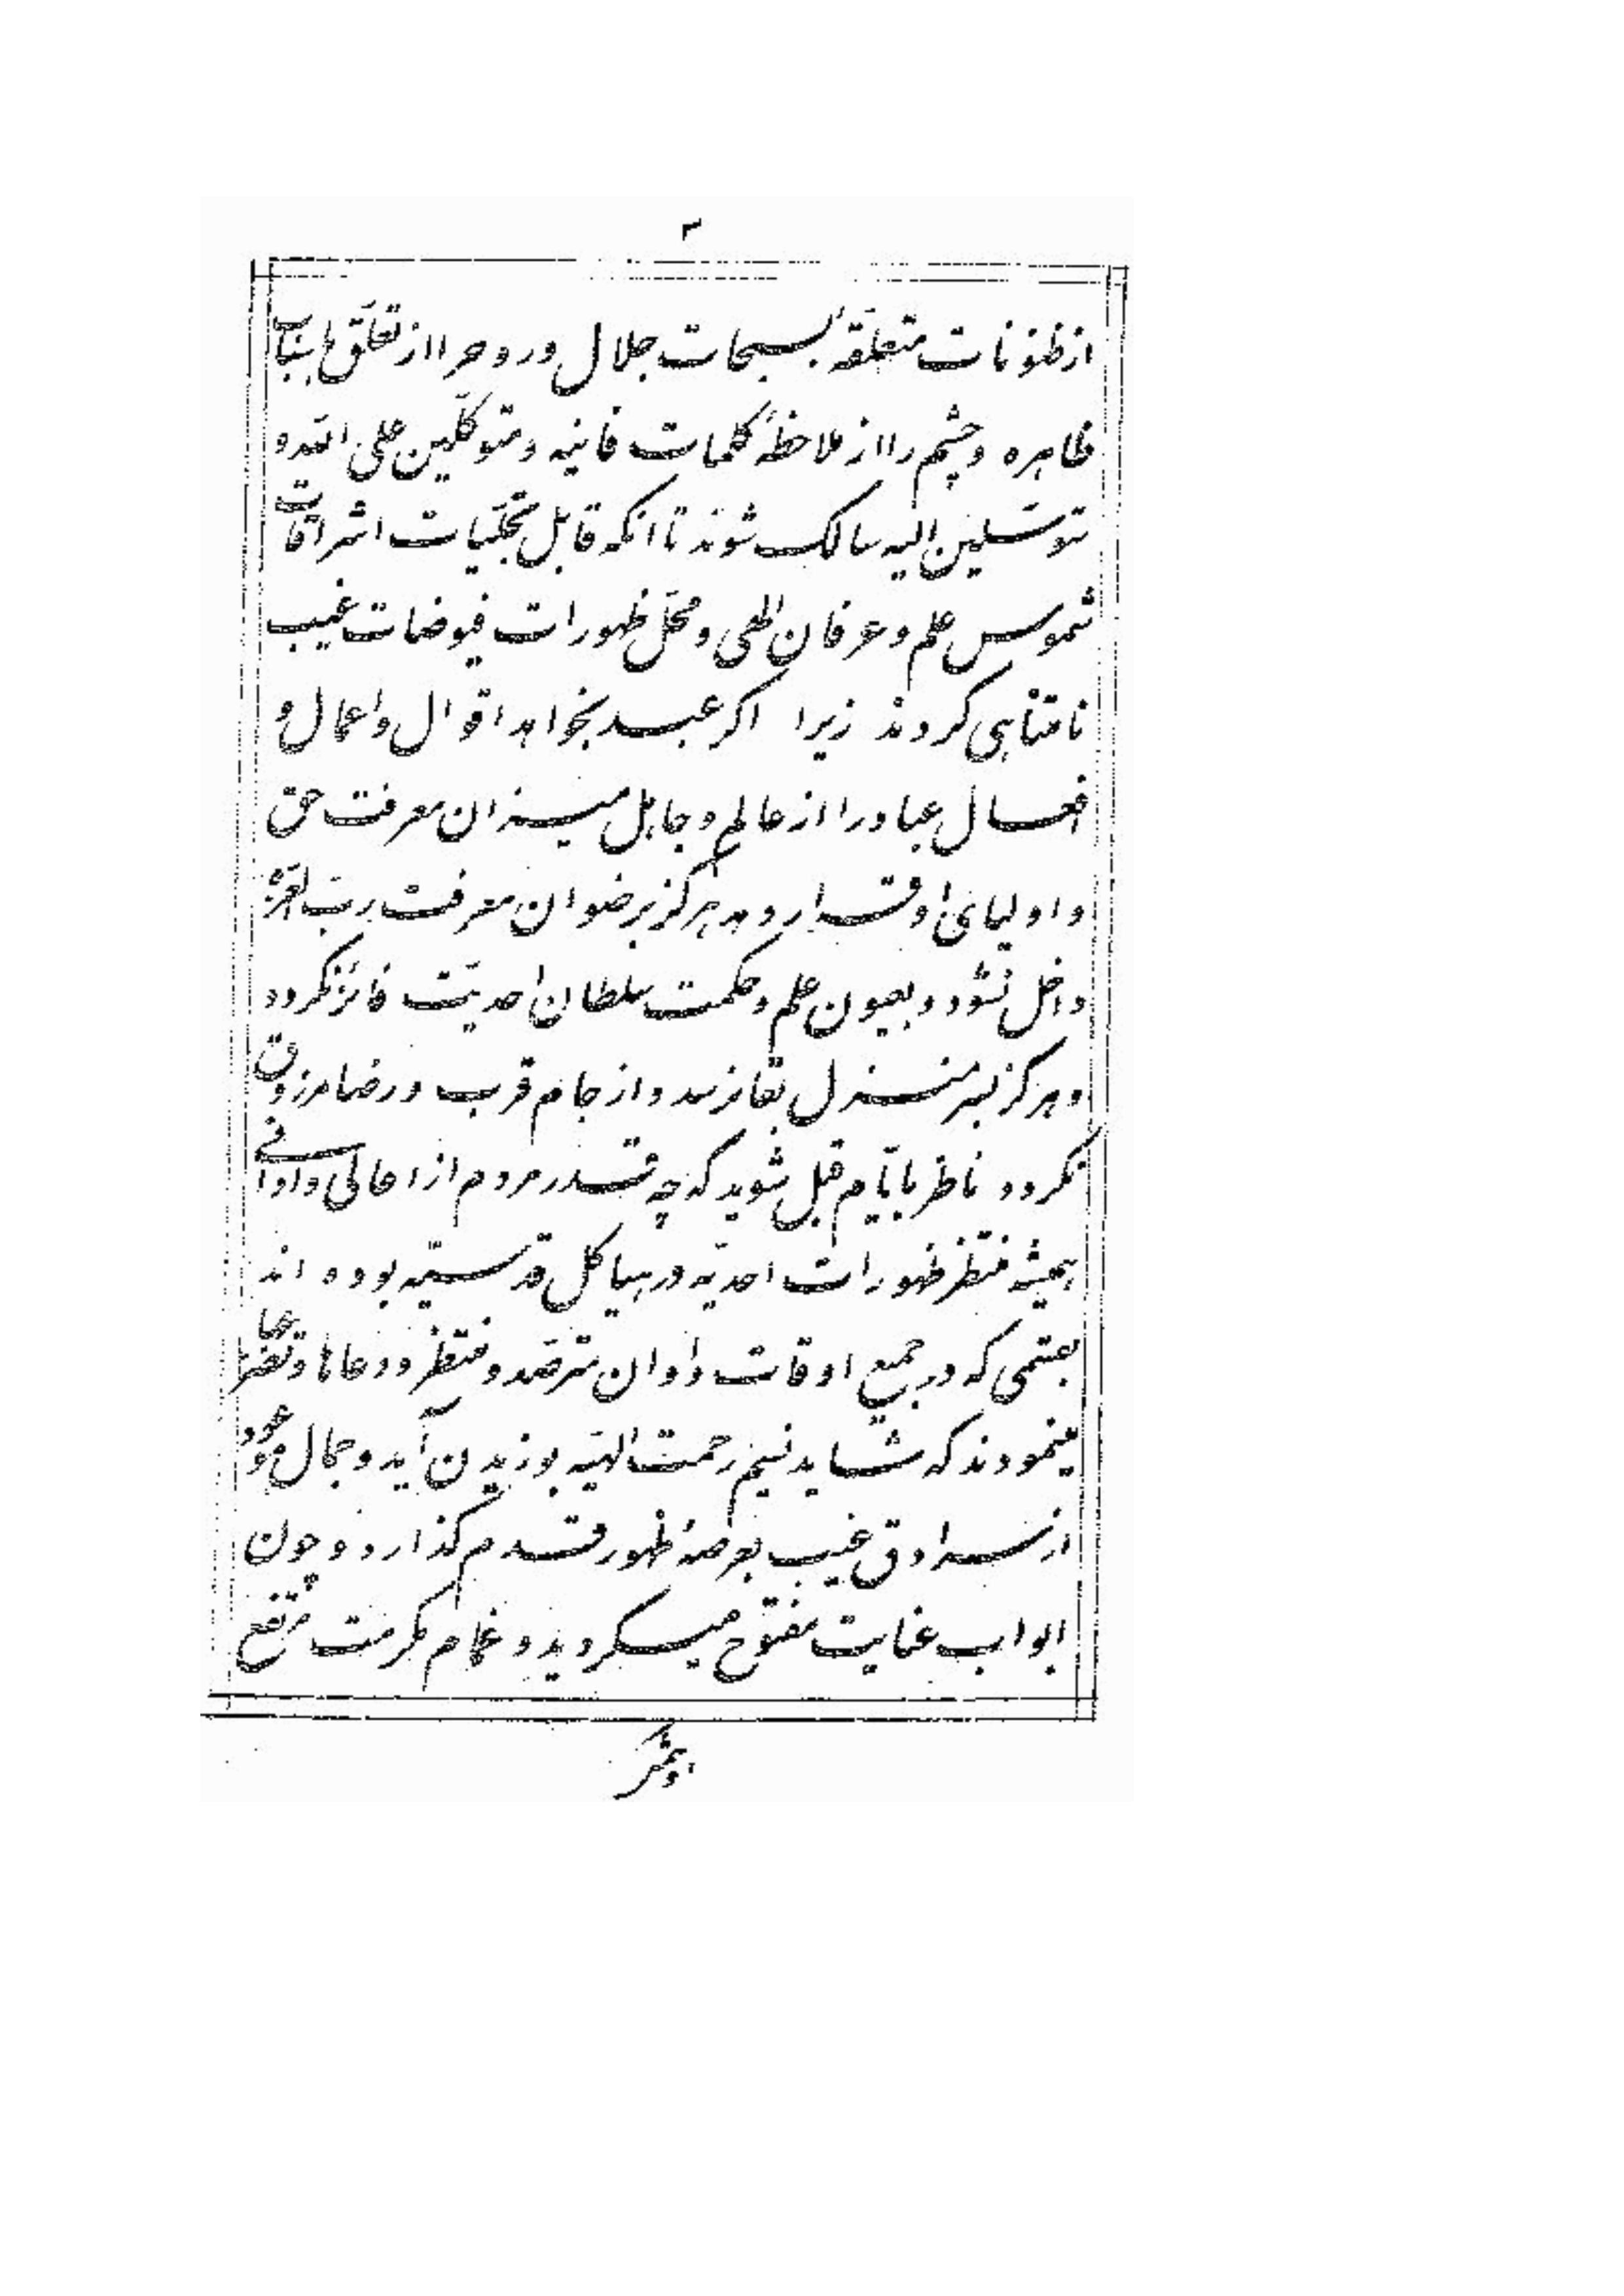 ۳
از ظنونات متعلّقه بسبحات جلال و روح را از تعلّق باسباب
ظاهره و چشم را از ملاحظهٔ کلمات فانیه و متوکّلین علی الله و
متوسّلین الیه سالک شوند تا انکه قابل تجلّیات اشراقات
شموس علم و عرفان الهی و محلّ ظهورات فیوضات غیب
نامتناهی گردند زیرا اگر عبد بخواهد اقوال و اعمال و
افعال عباد را از عالم و جاهل میزان معرفت حق
و اولیای او قرار دهد هرگز برضوان معرفت ربّ العزّة
داخل نشود و بعیون علم و حکمت سلطان احدیّت فائز نگردد
و هرگز بسر منزل بقا نرسد و از جام قرب و رضا مرزوق
نگردد ناظر بایّام قبل شوید که چه قدر مردم از اعالی و ادانی
همیشه منتظر ظهورات احدیّه در هیاکل قدسیّه بوده اند
بقسمی که در جمیع اوقات و اوان مترصّد و منتظر و دعاها و تضرّعها
مینمودند که شاید نسیم رحمت الهیّه بوزیدن آید و جمال موعود
از سرادق غیب بعرصهٔ ظهور قدم گذارد و چون
ابواب عنایت مفتوح میگردید و غمام مکرمت مرتفع